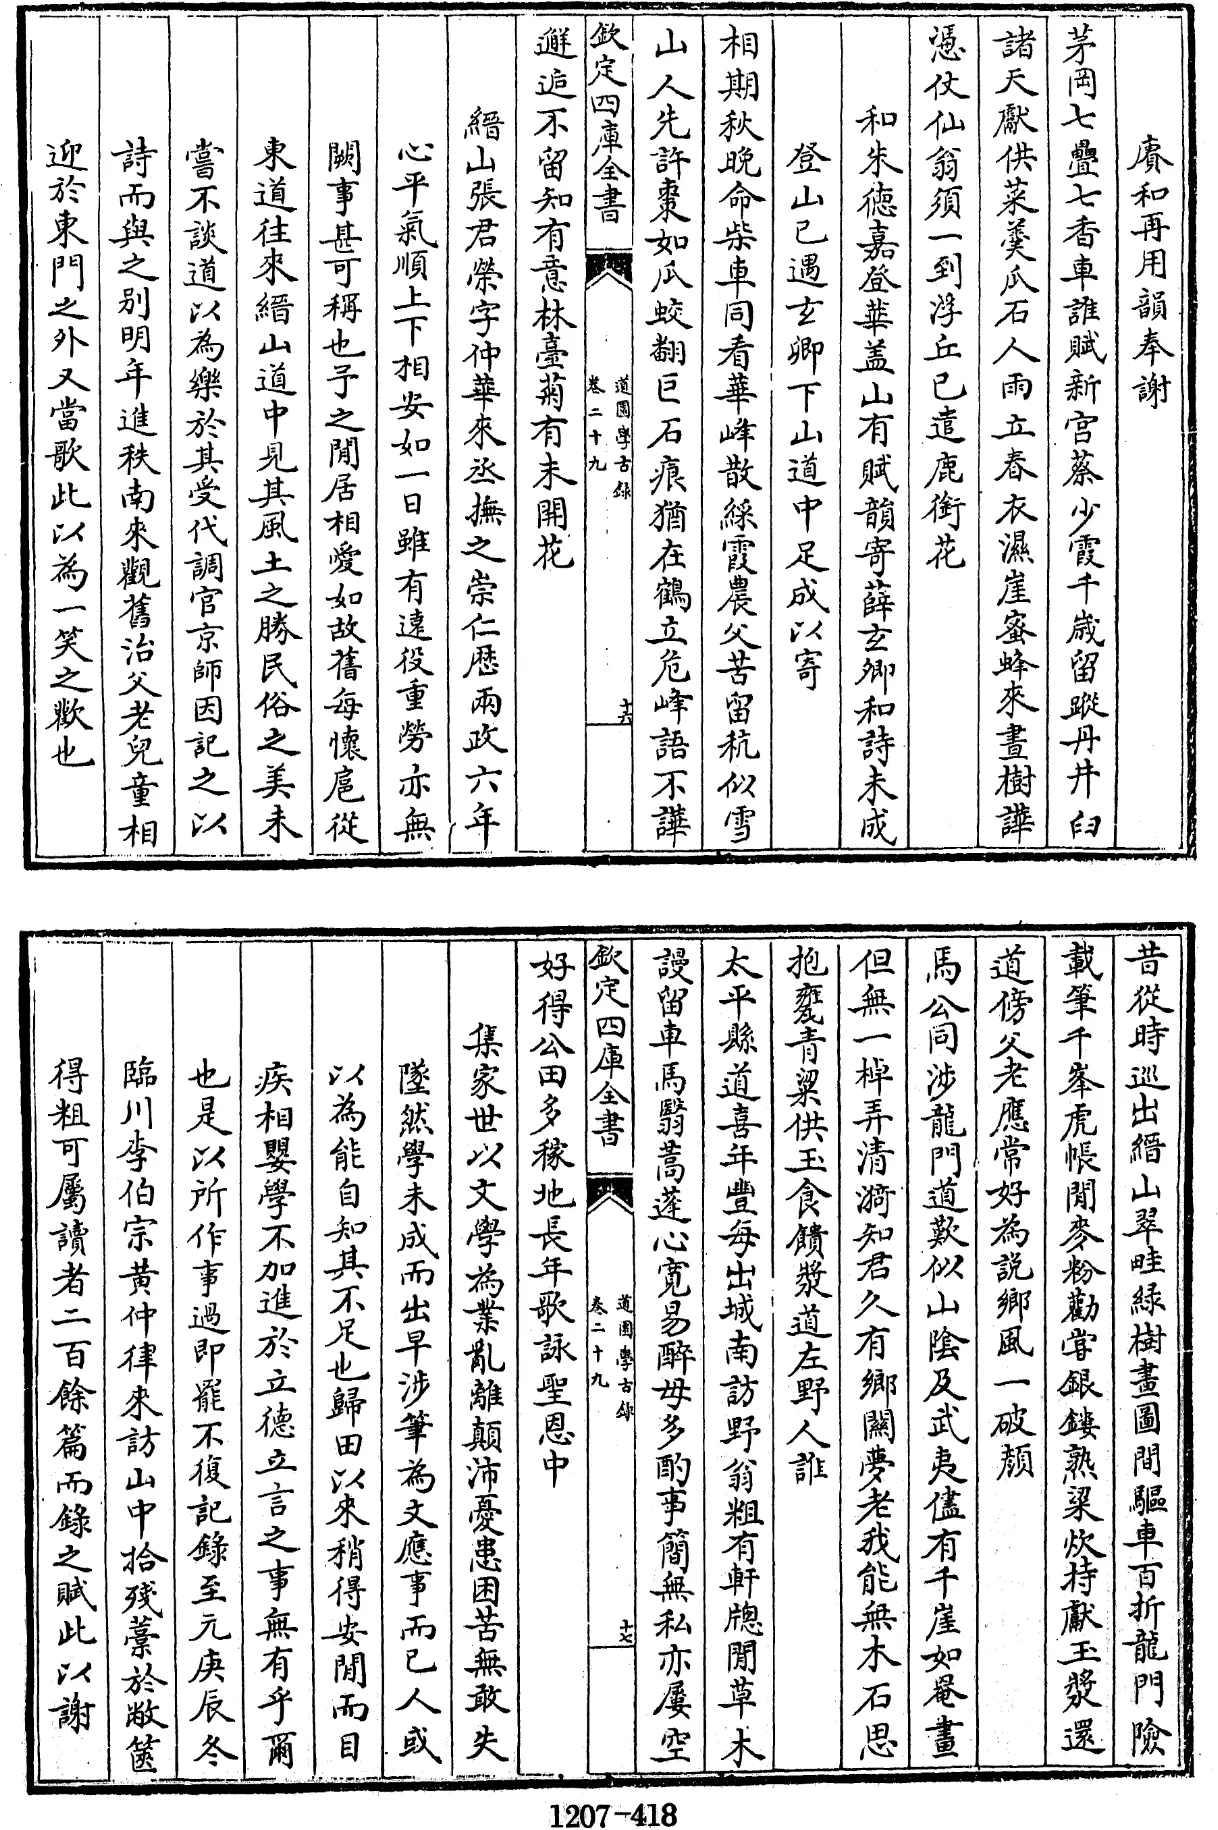 賡和再用韻奉謝
茅岡七疊七香車誰賦新宫蔡少霞千歲留蹤丹井臼
諸天獻供菜羮瓜石人雨立春衣濕崖蜜蜂來晝樹譁
憑仗仙翁須一到浮丘已遣鹿銜花
和朱徳嘉登華盖山有賦韻寄薛玄卿和詩未成
登山已遇玄卿下山道中足成以寄
相期秋晚命柴車同看華峰散綵霞農父苦留秔似雪
山人先許棗如瓜蛟翻巨石痕猶在鶴立危峰語不譁
欽定四庫全書
道園學古録
卷二十九
十六
邂逅不留知有意林臺菊有未開花
縉山張君榮字仲華來丞撫之崇仁歴兩政六年
心平氣順上下相安如一日雖有逺役重勞亦無
闕事甚可稱也予之閒居相愛如故舊每懷扈從
東道往來縉山道中見其風土之勝民俗之美未
嘗不談道以為樂於其受代調官京師因記之以
詩而與之别明年進秩南來觀舊治父老兒童相
迎於東門之外又當歌此以為一笑之歡也
昔從時巡出縉山翠畦緑樹畫圖間驅車百折龍門險
載筆千峯虎帳閒麥粉勸嘗銀鏤熟粱炊持獻玉漿還
道傍父老應常好為説鄉風一破顔
馬公同涉龍門道歎似山陰及武夷儘有千崖如罨畫
但無一棹弄清漪知君久有鄉闗夢老我能無木石思
抱甕青粱供玉食饋漿道左野人誰
太平縣道喜年豐每出城南訪野翁粗有軒牕閒草木
謾留車馬翳蒿蓬心寛易醉毋多酌事簡無私亦屢空
欽定四庫全書
道園學古録
卷二十九
十七
好得公田多稼地長年歌詠聖恩中
集家世以文學為業亂離顛沛憂患困苦無敢失
墜然學未成而出早涉筆為文應事而已人或
以為能自知其不足也歸田以來稍得安閒而目
疾相嬰學不加進於立德立言之事無有乎爾
也是以所作事過即罷不復記錄至元庚辰冬
臨川李伯宗黄仲律來訪山中拾殘藳於敝篋
得粗可屬讀者二百餘篇而錄之賦此以謝
1207-418